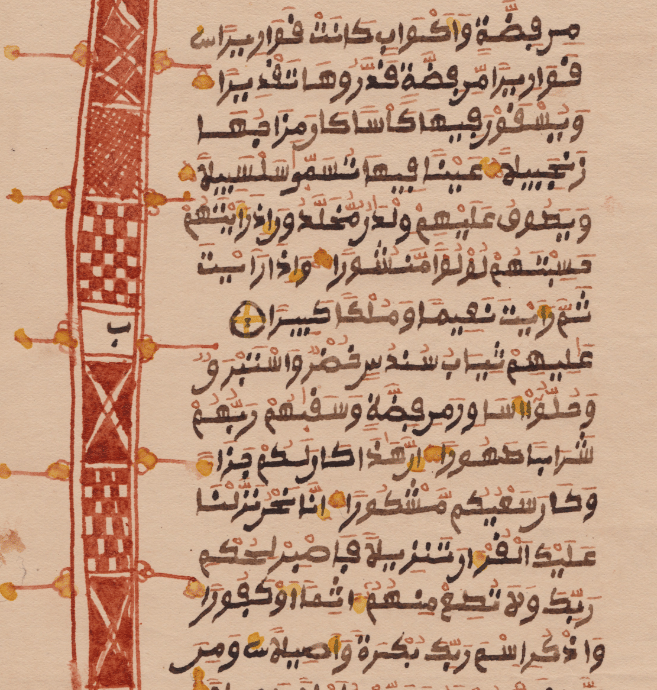 مِن فِضَّةٍ وَأَكْوَابٍ كَانَتْ قَوَارِيرَا
قَوَارِيرَا مِن فِضَّةٍ قَدَّرُوهَا تَقْدِيرًا
وَيُسْقَوْنَ فِيهَا كَأْسًا كَانَ مِزَاجُهَا
زَنجَبِيلًا عَيْنًا فِيهَا تُسَمَّىٰ سَلْسَبِيلًا
وَيَطُوفُ عَلَيْهِمْ وِلْدَٰنٌ مُّخَلَّدُونَ إِذَا رَأَيْتَهُمْ
حَسِبْتَهُمْ لُؤْلُؤًا مَّنثُورًا وَإِذَا رَأَيْتَ
ثَمَّ رَأَيْتَ نَعِيمًا وَمُلْكًا كَبِيرًا
عَٰلِيهِمْ ثِيَابُ سُندُسٍ خُضْرٌ وَإِسْتَبْرَقٌ
وَحُلُّوا أَسَاوِرَ مِن فِضَّةٍ وَسَقَىٰهُمْ رَبُّهُمْ
شَرَابًا طَهُورًا إِنَّ هَٰذَا كَانَ لَكُمْ جَزَاءً
وَكَانَ سَعْيُكُم مَّشْكُورًا إِنَّا نَحْنُ نَزَّلْنَا
عَلَيْكَ الْقُرْآنَ تَنزِيلًا فَاصْبِرْ لِحُكْمِ
رَبِّكَ وَلَا تُطِعْ مِنْهُمْ آثِمًا أَوْ كَفُورًا
وَاذْكُرِ اسْمَ رَبِّكَ بُكْرَةً وَأَصِيلًا وَمِنَ